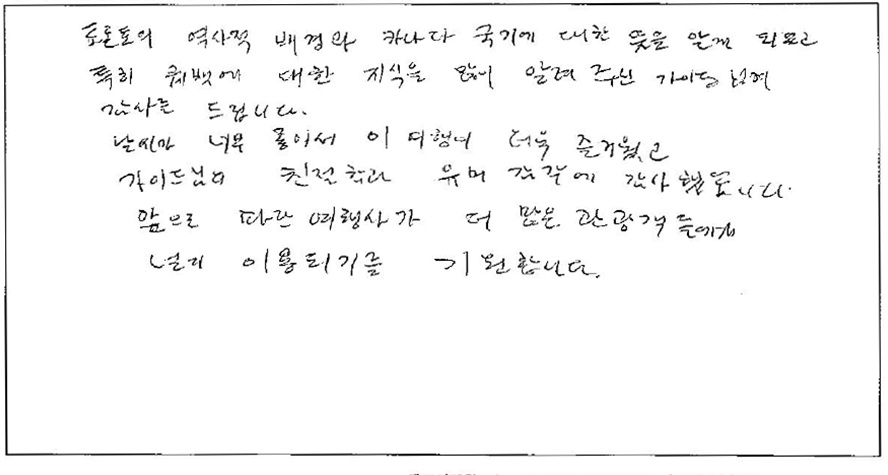 토론토의 역사적 배경과 카나다 국기에 대한 뜻을 알게 되었고
특히 퀘벡에 대한 지식을 많이 알려 주신 가이드님께
감사를 드립니다.
날씨가 너무 좋아서 이 여행이 더욱 즐거웠고
가이드님의 친절함과 유머 감각에 감사했습니다.
앞으로 파란여행사가 더 많은 관광객들에게
널리 이용되기를 기원합니다.